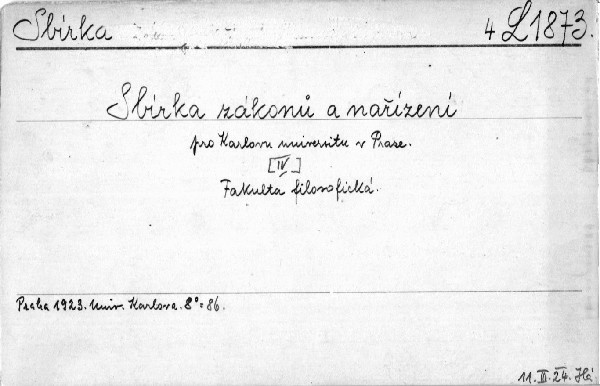 Sbírka 4 L 1873.
Sbírka zákonů a nařízení
pro Karlovu universitu v Praze.
[IV]
Fakulta filosofická.
Praha 1923. Univ. Karlova. 8°=86.
11. III. 24. Há